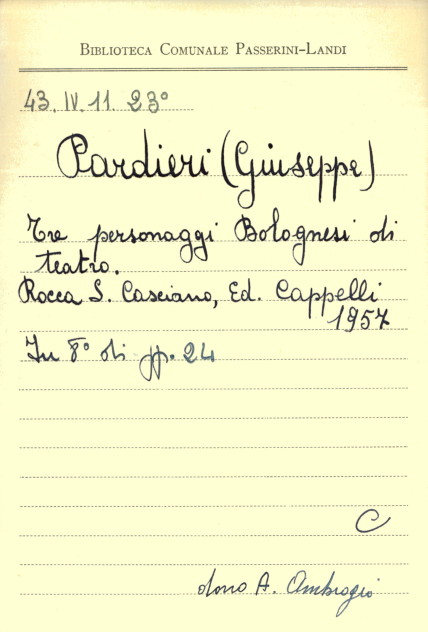 BIBLIOTECA COMUNALE PASSERINI-LANDI
43. IV. 11. 23°
Pardieri (Giuseppe)
Tre personaggi Bolognesi di
teatro.
Rocca S. Casciano, Ed. Cappelli
1957
In 8° di pp. 24
C
dono A. Ambrogio